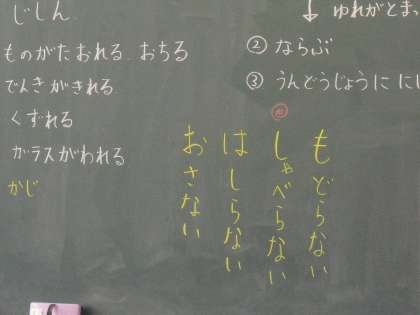 じしん
ものがたおれる おちる
でんきがきれる
くずれる
ガラスがわれる
かじ
↓ ゆれがとまっ
② ならぶ
③ うんどうじょうに にし
おさない
はしらない
しゃべらない
もどらない